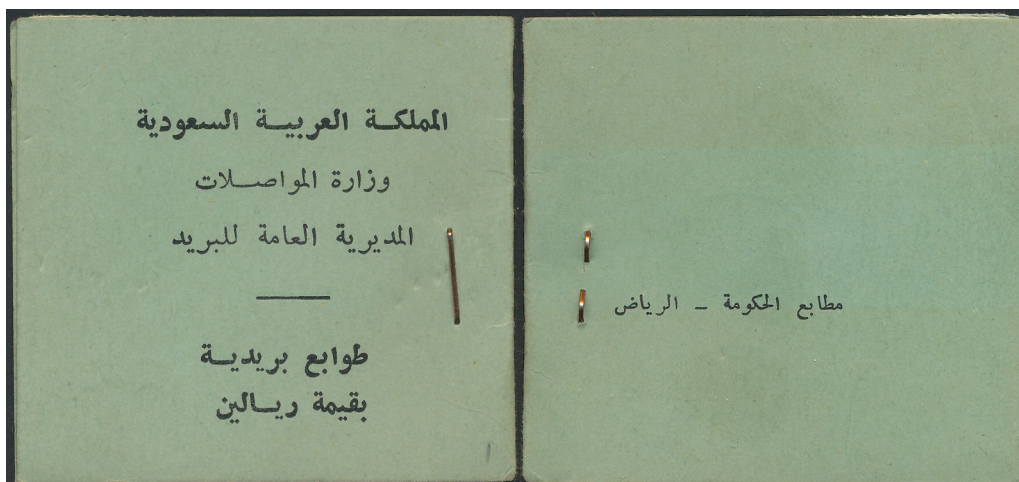 المملكة العربية السعودية
وزارة المواصلات
المديرية العامة للبريد
طوابع بريدية
بقيمة ريالين
مطابع الحكومة - الرياض